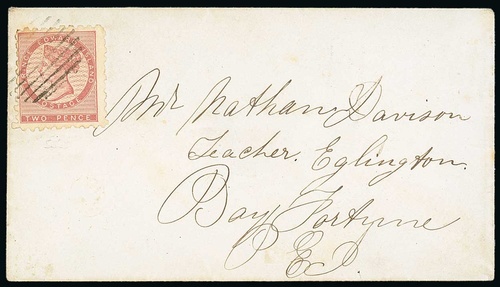 PRINCE EDWARD ISLAND
POSTAGE
TWO PENCE
Mr Nathan Davison
Teacher. Eglington.
Bay Fortune